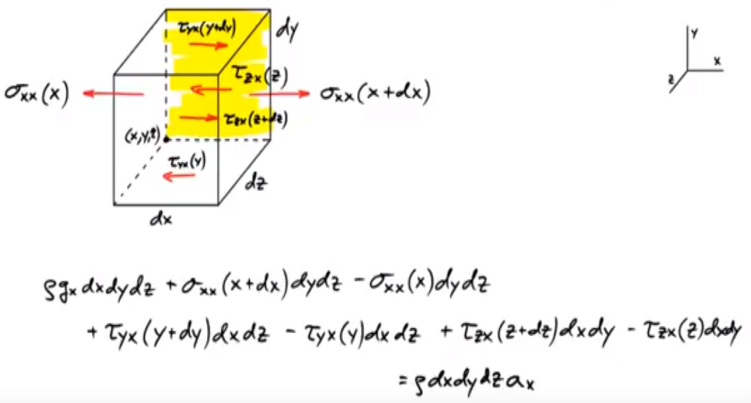 τyx(y+dy)
dy
y
x
z
σxx(x)
τzx(z)
σxx(x+dx)
τzx(z+dz)
(x,y,z)
τyx(y)
dz
dx
ρgx dxdydz + σxx(x+dx)dydz - σxx(x)dydz
+ τyx(y+dy)dxdz - τyx(y)dxdz + τzx(z+dz)dxdy - τzx(z)dxdy
= ρdxdydz ax